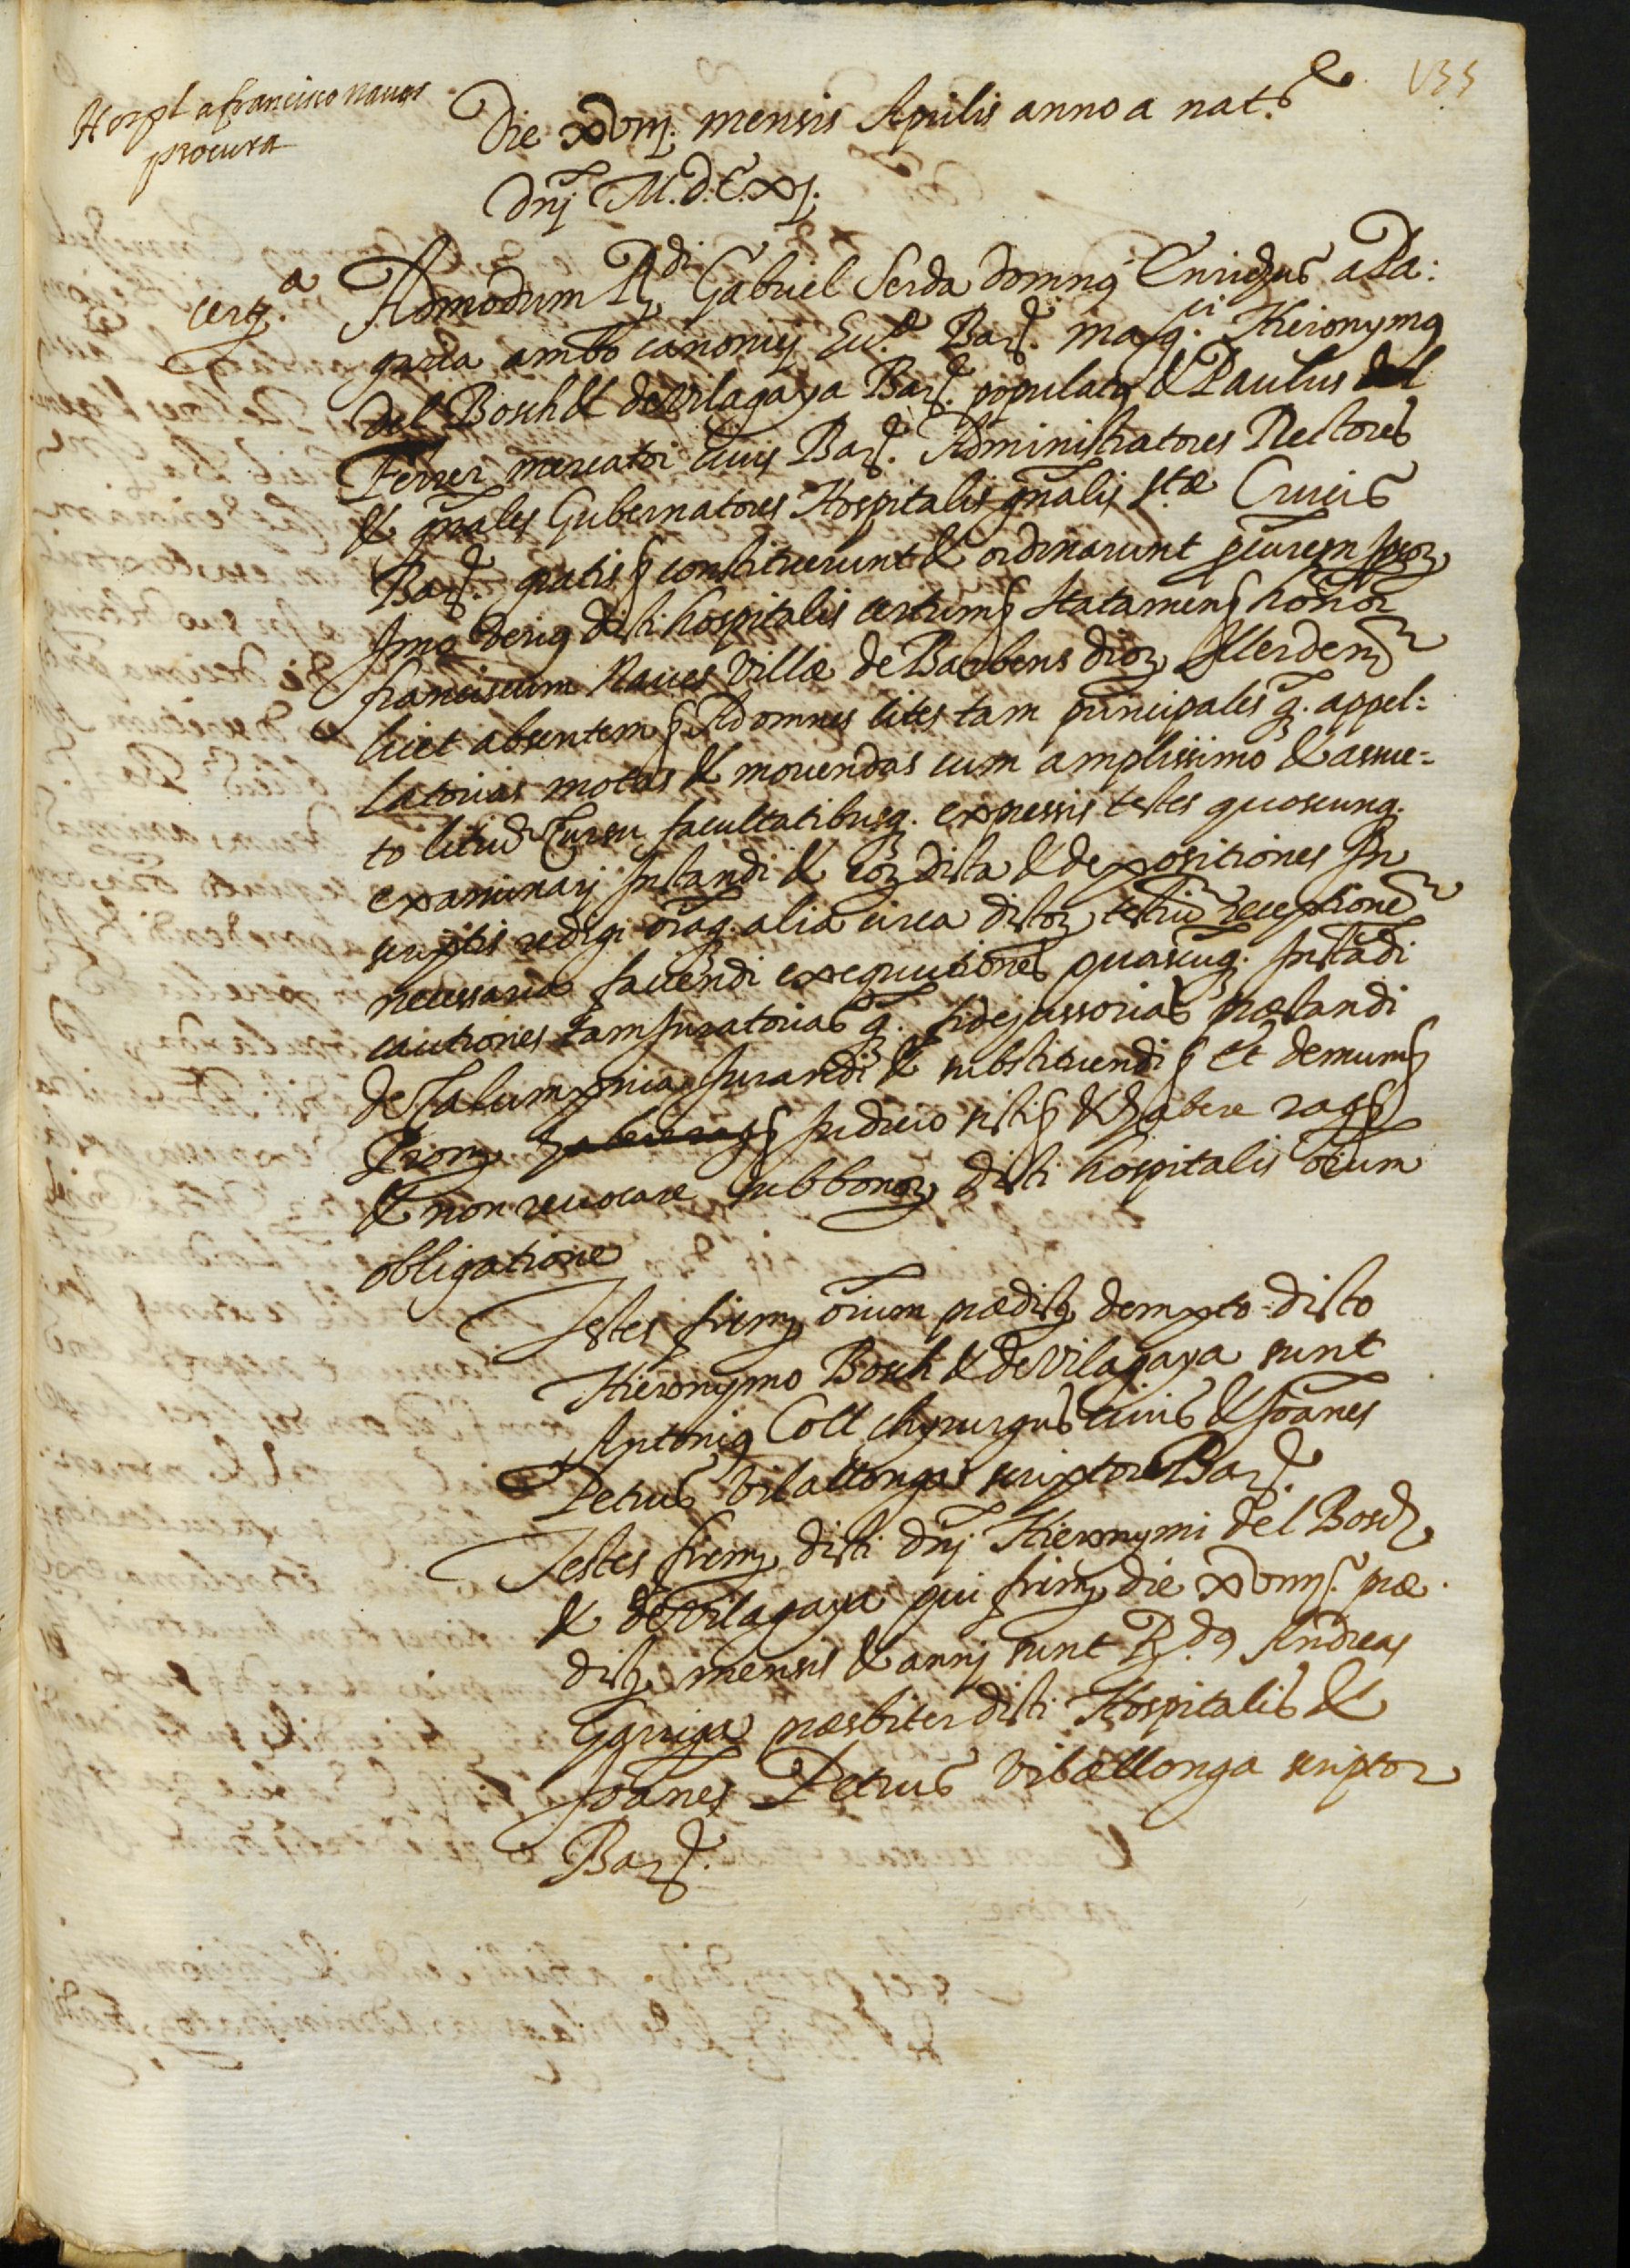 135
Hospl a francisco naues
procura
Die xviij. mensis Aprilis anno a nat.e
Dnj M.D.C.xj.
certa.
Admodum Rdi Gabriel Serda domnus Enricus a Pa:
garia ambo canonicj Ecc.e Bar. magci. Hieronymus
del Bosch & de Vilagaya Bar. populatus & Paulus
Ferrer mercator ciuis Bar. Administratores Rectores
& gnales Gubernatores Hospitalis gnalis Stæ Crucis
Bar. gratis constituerunt & ordinarunt procurem
dicti hospitalis certum statamen honor
franciscum Naues Villæ de Barbens dioc. Illerden
licet absentem Ad omnes lites tam principales q. appel:
latorias motas & mouendas cum amplissimo & assue-
to litium cursu facultatibusq. expressis testes quoscunq.
examinarj Instandi & eor. dicta & depositiones In
scriptis redigi oiaq. alia circa dictor. testiu receptione
necessaria faciendi exequutiones quascuq. Instadi
cautiones tam Juratorias q. fidejussorias præstandi
de Calumpnia Jurandi & substituendi Et demum
Prom. habere rat Judicio sisti & habere rat
& non reuocare sub bonor. dicti hospitalis oium
obligatione
Testes firmæ oium prædict. dempto dicto
Hieronymo Bosch & de Vilagaya sunt
Antonius Coll chyrurgus ciuis & Joanes
Petrus Vilallonga scriptor Bar.
Testes firmæ dicti dnj Hieronymi del Bosch
& de Vilagaya qui firm. die xviiij. præ
dict. mensis & annj sunt R.dus Andreas
Garriga præsbiter dicti Hospitalis &
Joanes Petrus Vilallonga scriptor
Bar.